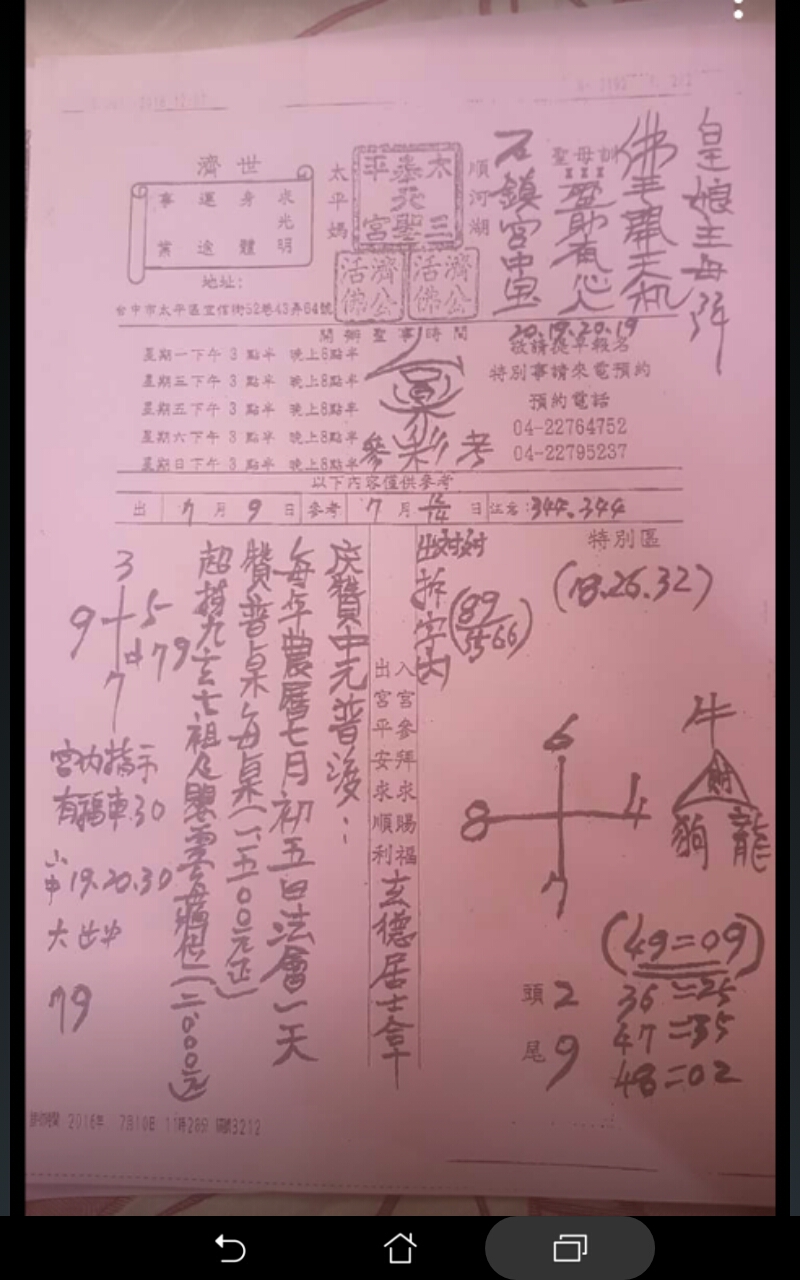 皇娘主母降
佛手開天机
聖母訓
石鎮宮中
順河湖
太泰平
三聖宮
太平媽
濟公活佛
濟公活佛
濟世
求光明
身體
運途
事業
地址:
台中市太平區宜信街52巷43弄64號
開辦聖事時間
20.19.20.19
星期一下午 3 點半 晚上6點半
星期三下午 3 點半 晚上8點半
星期五下午 3 點半 晚上8點半
星期六下午 3 點半 晚上8點半
星期日下午 3 點半 晚上8點半
參彩考
敬請提早報名
特別事請來電預約
預約電話
04-22764752
04-22795237
以下內容僅供參考
出 7 月 9 日 參考 7 月 日 注意: 344.344
特別區
(18.26.32)
拆字內
(89
5566)
6
8 4
7
牛
財
狗 龍
(49=09)
36=25
47=35
48=02
頭 2
尾 9
入宮參拜求賜福
出宮平安求順利
玄德居士拿
庆贊中元普渡:
每年農曆七月初五日法會一天
贊普桌每桌(一、五00元正)
超拔九玄七祖及嬰靈(二、000元)
3
9 5
中79
7
宮內指示
有福車.30
小中19.20.30
大出中
79
2016年 7月10日 11時28分 3212